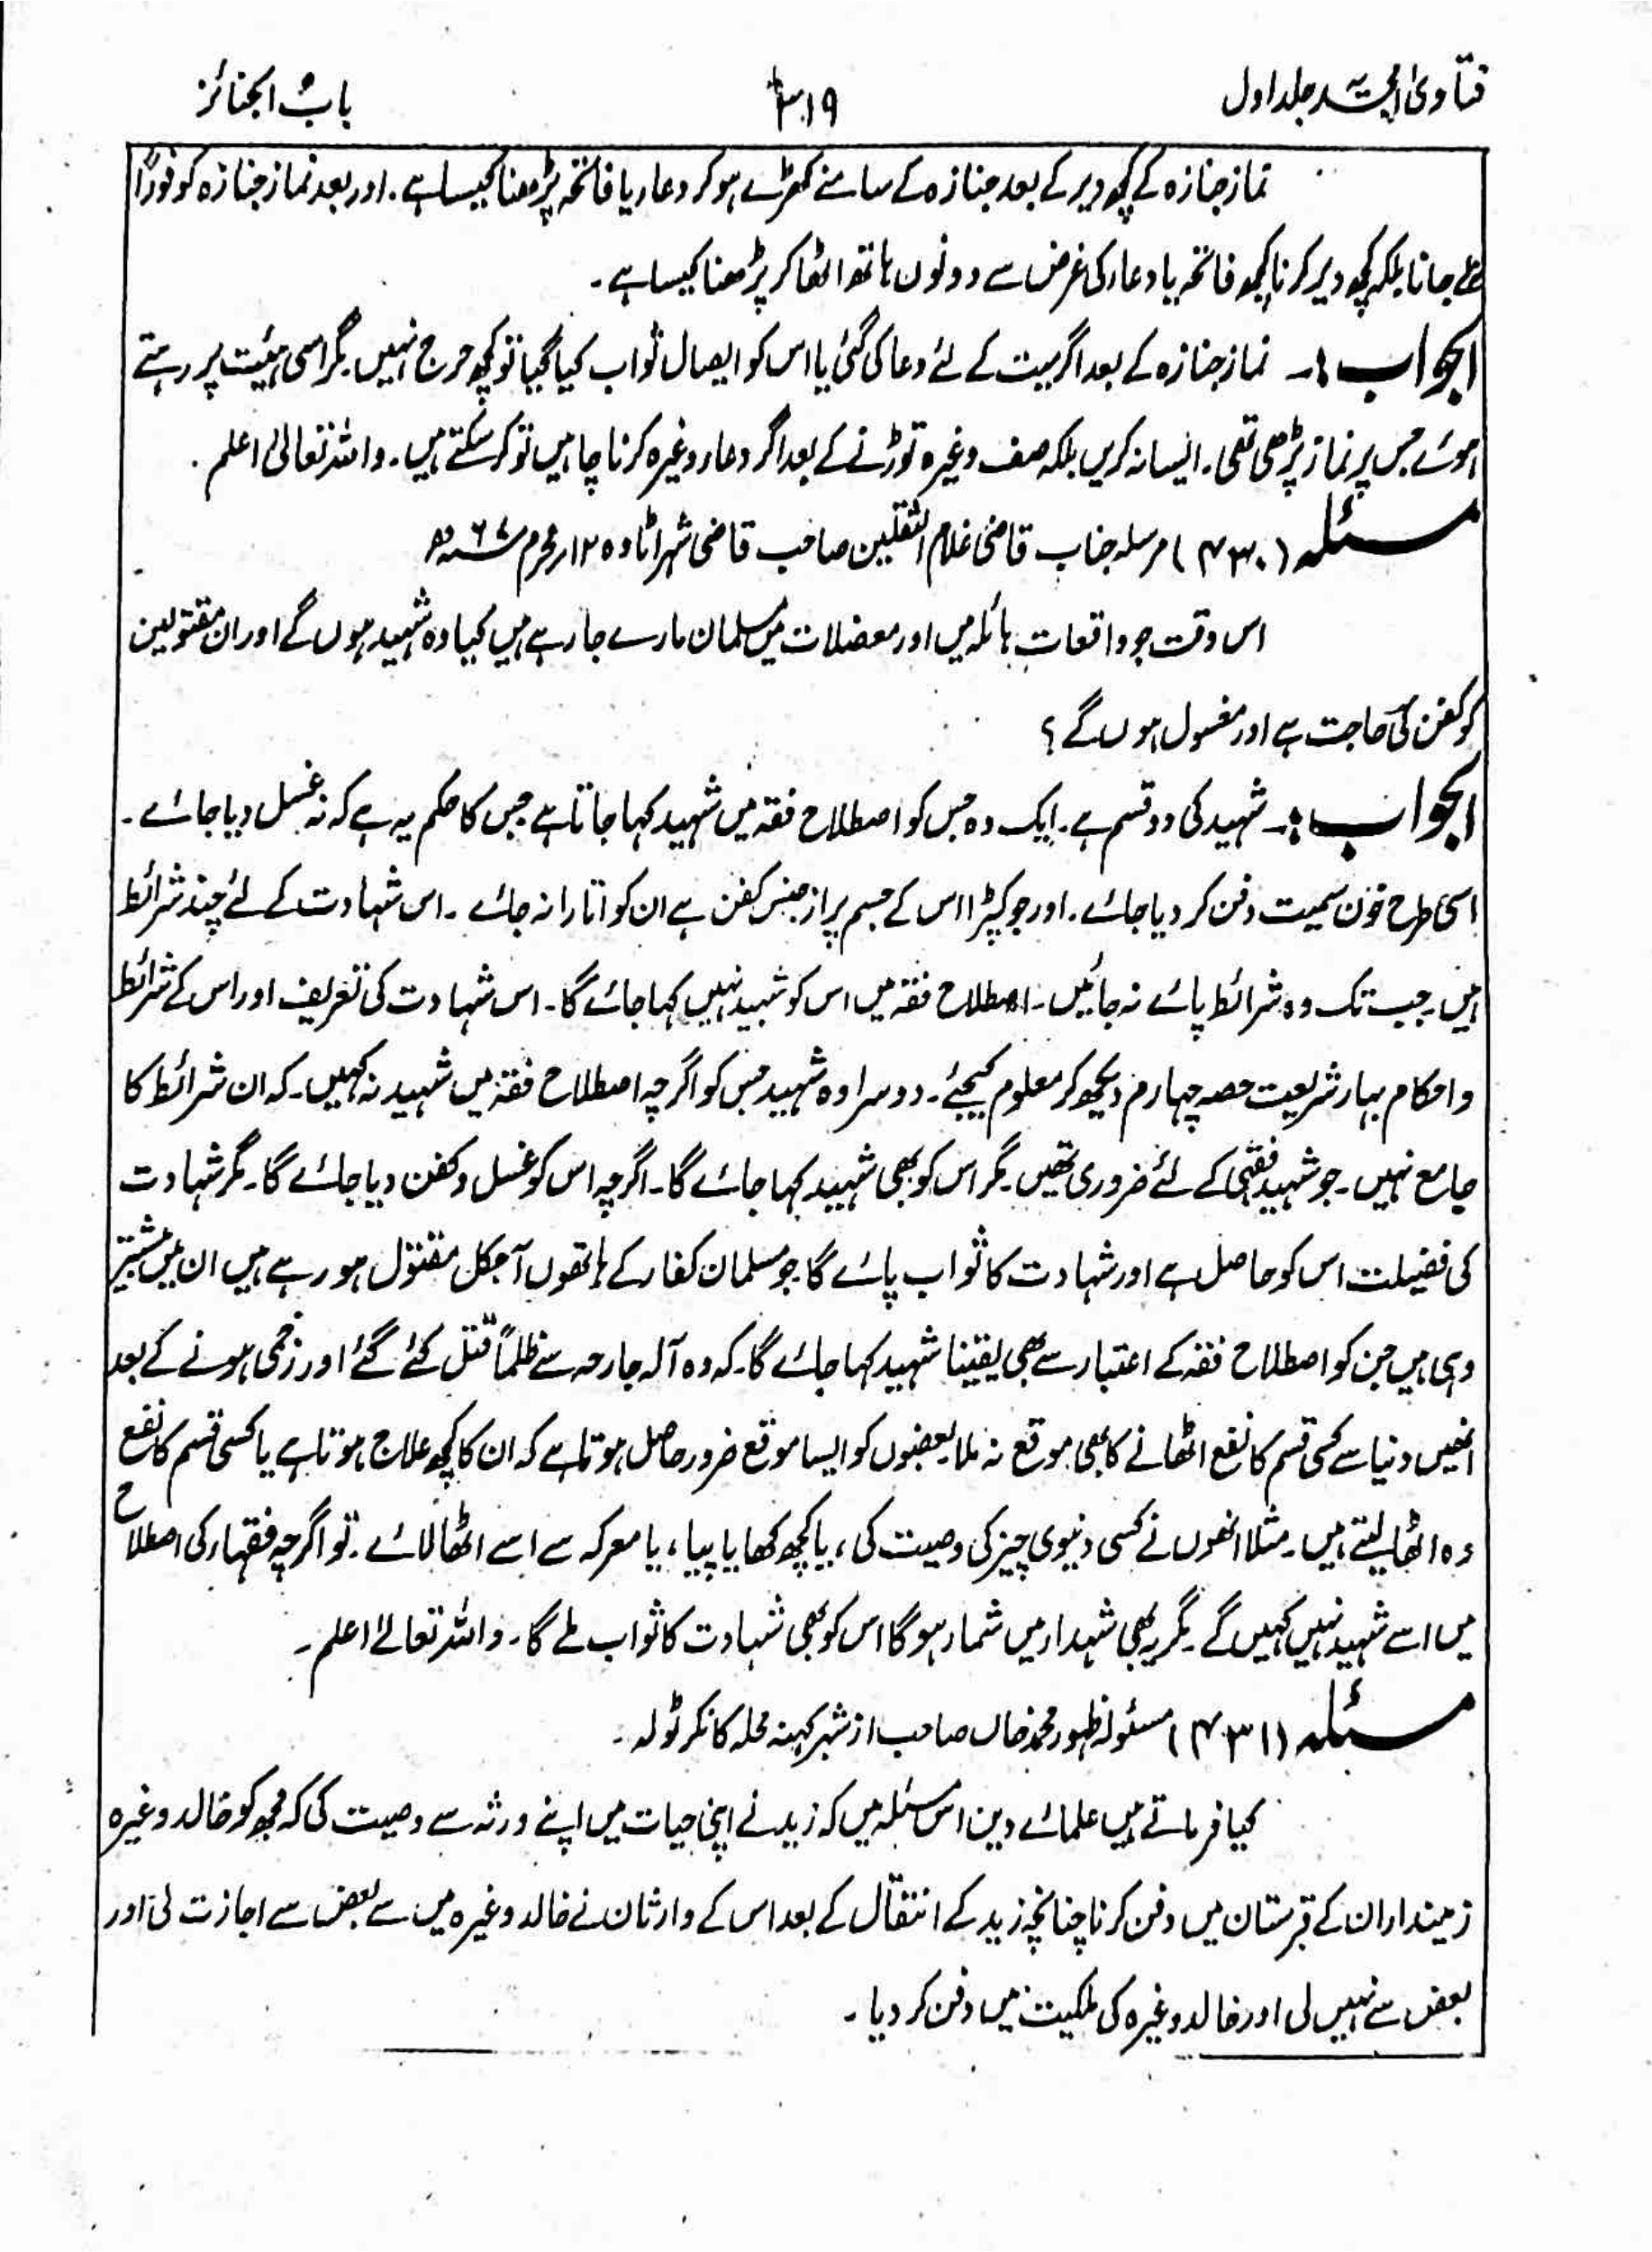 فتاویٰ امجدیہ جلد اول
۳۱۹
باب الجنائز
نماز جنازہ کے کچھ دیر کے بعد جنازہ کے سامنے کھڑے ہو کر دعاء یا فاتحہ پڑھنا کیسا ہے۔ اور بعد نماز جنازہ کو فوراً
لے جانا بلکہ کچھ دیر کرنا کچھ فاتحہ یا دعاء کی غرض سے دونوں ہاتھ اٹھا کر پڑھنا کیسا ہے۔
الجواب :۔ نماز جنازہ کے بعد اگر میت کے لئے دعا کی گئی یا اس کو ایصال ثواب کیا گیا تو کچھ حرج نہیں مگر اسی ہیئت پر رہتے
ہوئے جس پر نماز پڑھی تھی۔ ایسا نہ کریں بلکہ صف وغیرہ توڑنے کے بعد اگر دعاء وغیرہ کرنا چاہیں تو کر سکتے ہیں۔ واللہ تعالیٰ اعلم۔
مسئلہ (۴۳۰) مرسلہ جناب قاضی غلام الثقلین صاحب قاضی شہر اٹاوہ ۱۲ محرم ۶۷ھ
اس وقت جو واقعات ہائلہ میں اور معضلات میں مسلمان مارے جا رہے ہیں کیا وہ شہید ہوں گے اور ان مقتولین
کو کفن کی حاجت ہے اور مغسول ہوں گے ؟
الجواب :۔ شہید کی دو قسم ہے۔ ایک وہ جس کو اصطلاح فقہ میں شہید کہا جاتا ہے جس کا حکم یہ ہے کہ نہ غسل دیا جائے۔
اسی طرح خون سمیت دفن کر دیا جائے۔ اور جو کپڑا اس کے جسم پر از جنس کفن ہے ان کو اتارا نہ جائے۔ اس شہادت کے لئے چند شرائط
ہیں۔ جب تک وہ شرائط پائے نہ جائیں۔ اصطلاح فقہ میں اس کو شہید نہیں کہا جائے گا۔ اس شہادت کی تعریف اور اس کے شرائط
و احکام بہار شریعت حصہ چہارم دیکھ کر معلوم کیجئے۔ دوسرا وہ شہید جس کو اگرچہ اصطلاح فقہ میں شہید نہ کہیں۔ کہ ان شرائط کا
جامع نہیں۔ جو شہید فقہی کے لئے ضروری تھیں۔ مگر اس کو بھی شہید کہا جائے گا۔ اگرچہ اس کو غسل و کفن دیا جائے گا۔ مگر شہادت
کی فضیلت اس کو حاصل ہے اور شہادت کا ثواب پائے گا جو مسلمان کفار کے ہاتھوں آجکل مقتول ہو رہے ہیں ان میں بیشتر
وہی ہیں جن کو اصطلاح فقہ کے اعتبار سے بھی یقینا شہید کہا جائے گا۔ کہ وہ آلہ جارحہ سے ظلماً قتل کئے گئے اور زخمی ہونے کے بعد
انھیں دنیا سے کسی قسم کا نفع اٹھانے کا بھی موقع نہ ملا بعضوں کو ایسا موقع ضرور حاصل ہوتا ہے کہ ان کا کچھ علاج ہوتا ہے یا کسی قسم کا نفع
وہ اٹھا لیتے ہیں۔ مثلا انھوں نے کسی دنیوی چیز کی وصیت کی، یا کچھ کھایا پیا، یا معرکہ سے اسے اٹھا لائے۔ تو اگرچہ فقہاء کی اصطلاح
میں اسے شہید نہیں کہیں گے۔ مگر یہ بھی شہداء میں شمار ہوگا اس کو بھی شہادت کا ثواب ملے گا۔ واللہ تعالیٰ اعلم۔
مسئلہ (۴۳۱) مسئولہ ظہور محمد خاں صاحب از شہر کہنہ محلہ کانکر ٹولہ۔
کیا فرماتے ہیں علمائے دین اس مسئلہ میں کہ زید نے اپنی حیات میں اپنے ورثہ سے وصیت کی کہ مجھ کو خالد وغیرہ
زمینداران کے قبرستان میں دفن کرنا چنانچہ زید کے انتقال کے بعد اس کے وارثان نے خالد وغیرہ میں سے بعض سے اجازت لی اور
بعض سے نہیں لی اور خالد وغیرہ کی ملکیت میں دفن کر دیا۔